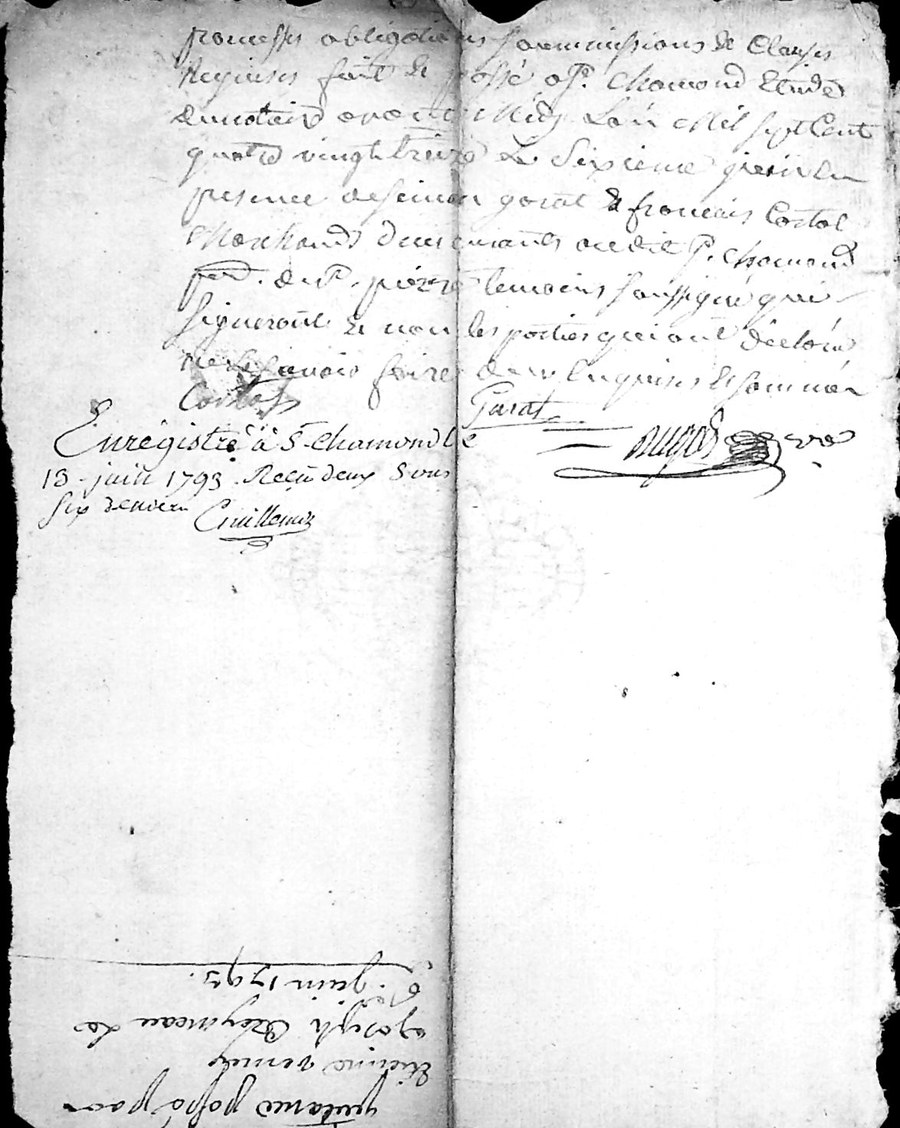 promesses obligations soumissions & Clauses
Requises fait & passé a St. Chamond Etude
du notaire avant Midy Lan Mil Sept Cent
quatre vingt treize Le Sixieme juin En
presence de garat & francois Costal
Marchands demeurants audit St. Chamond
temoins soussigné qui
signeront & non les parties qui ont declaré
ne le savoir faire de ce Enquises & sommées
Costal
Garat
Enregistré à St. Chamond le
13 juin 1793 Reçu deux Sous
Six deniers
Guillemin
quitance passé par
Etienne
a joseph Le
6. juin 1793.